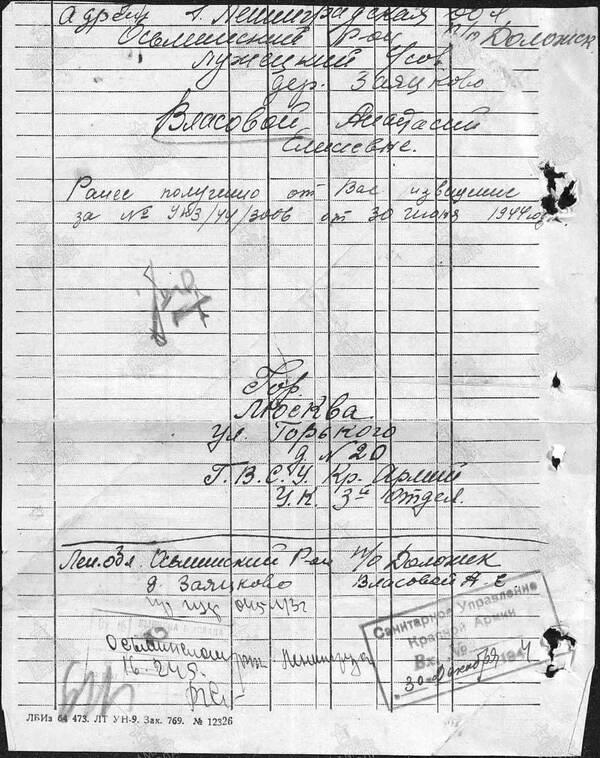 Адрес: Ленинградская обл.
Осьминский Р-он п/о Доложск
Лужецкий с/сов
дер. Заяцково
Власовой Анастасии
Елисевне.
Ранее получено от Вас извещение
за № УК3/44/3006 от 30 июня 1944 год
Гор
Москва
ул. Горького
д № 20
Г.В.С.У. Кр. Армии
У.К. 3й Отдел.
Лен. обл. Осьминский Р-он п/о Доложск
д. Заяцково Власовой А. Е
Санитарное Управление
Красной Армии
Вх. №
30 декабря 194 4
16.2.45.
ЛБИз 64 473. ЛТ УН-9. Зак. 769. № 12326